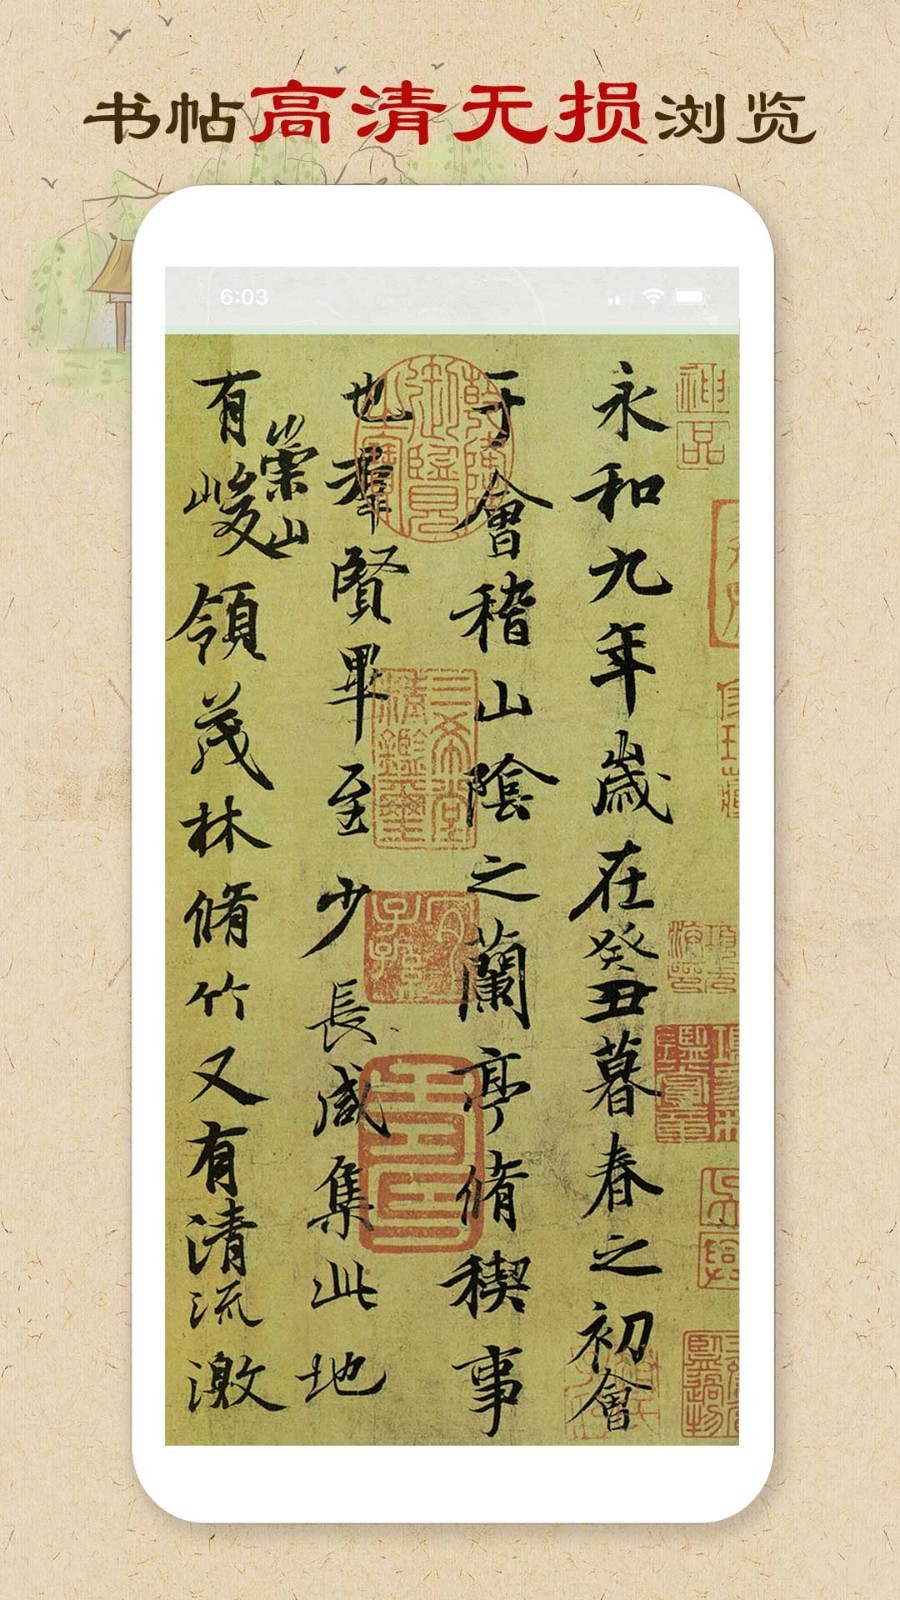 书帖高清无损浏览
6:03
神品
永和九年歲在癸丑暮春之初會
于會稽山陰之蘭亭脩稧事
也羣賢畢至少長咸集此地
有崇山峻領茂林脩竹又有清流激
三希堂精鑑璽